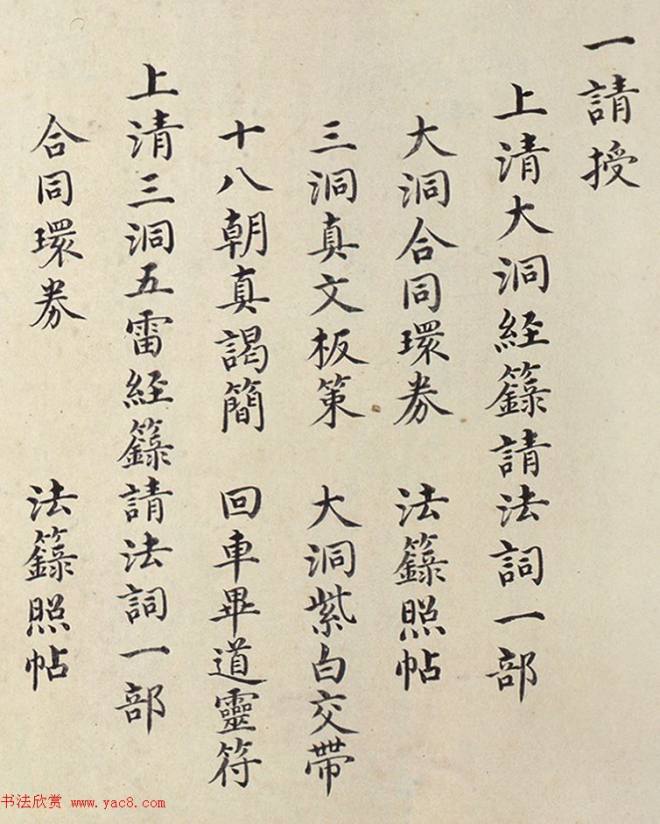 一請授
上清大洞経籙請法詞一部
大洞合同環券　法籙照帖
三洞真文板策　大洞紫白交帶
十八朝真謁簡　回車畢道靈符
上清三洞五雷経籙請法詞一部
合同環券　法籙照帖
书法欣赏 www.yac8.com